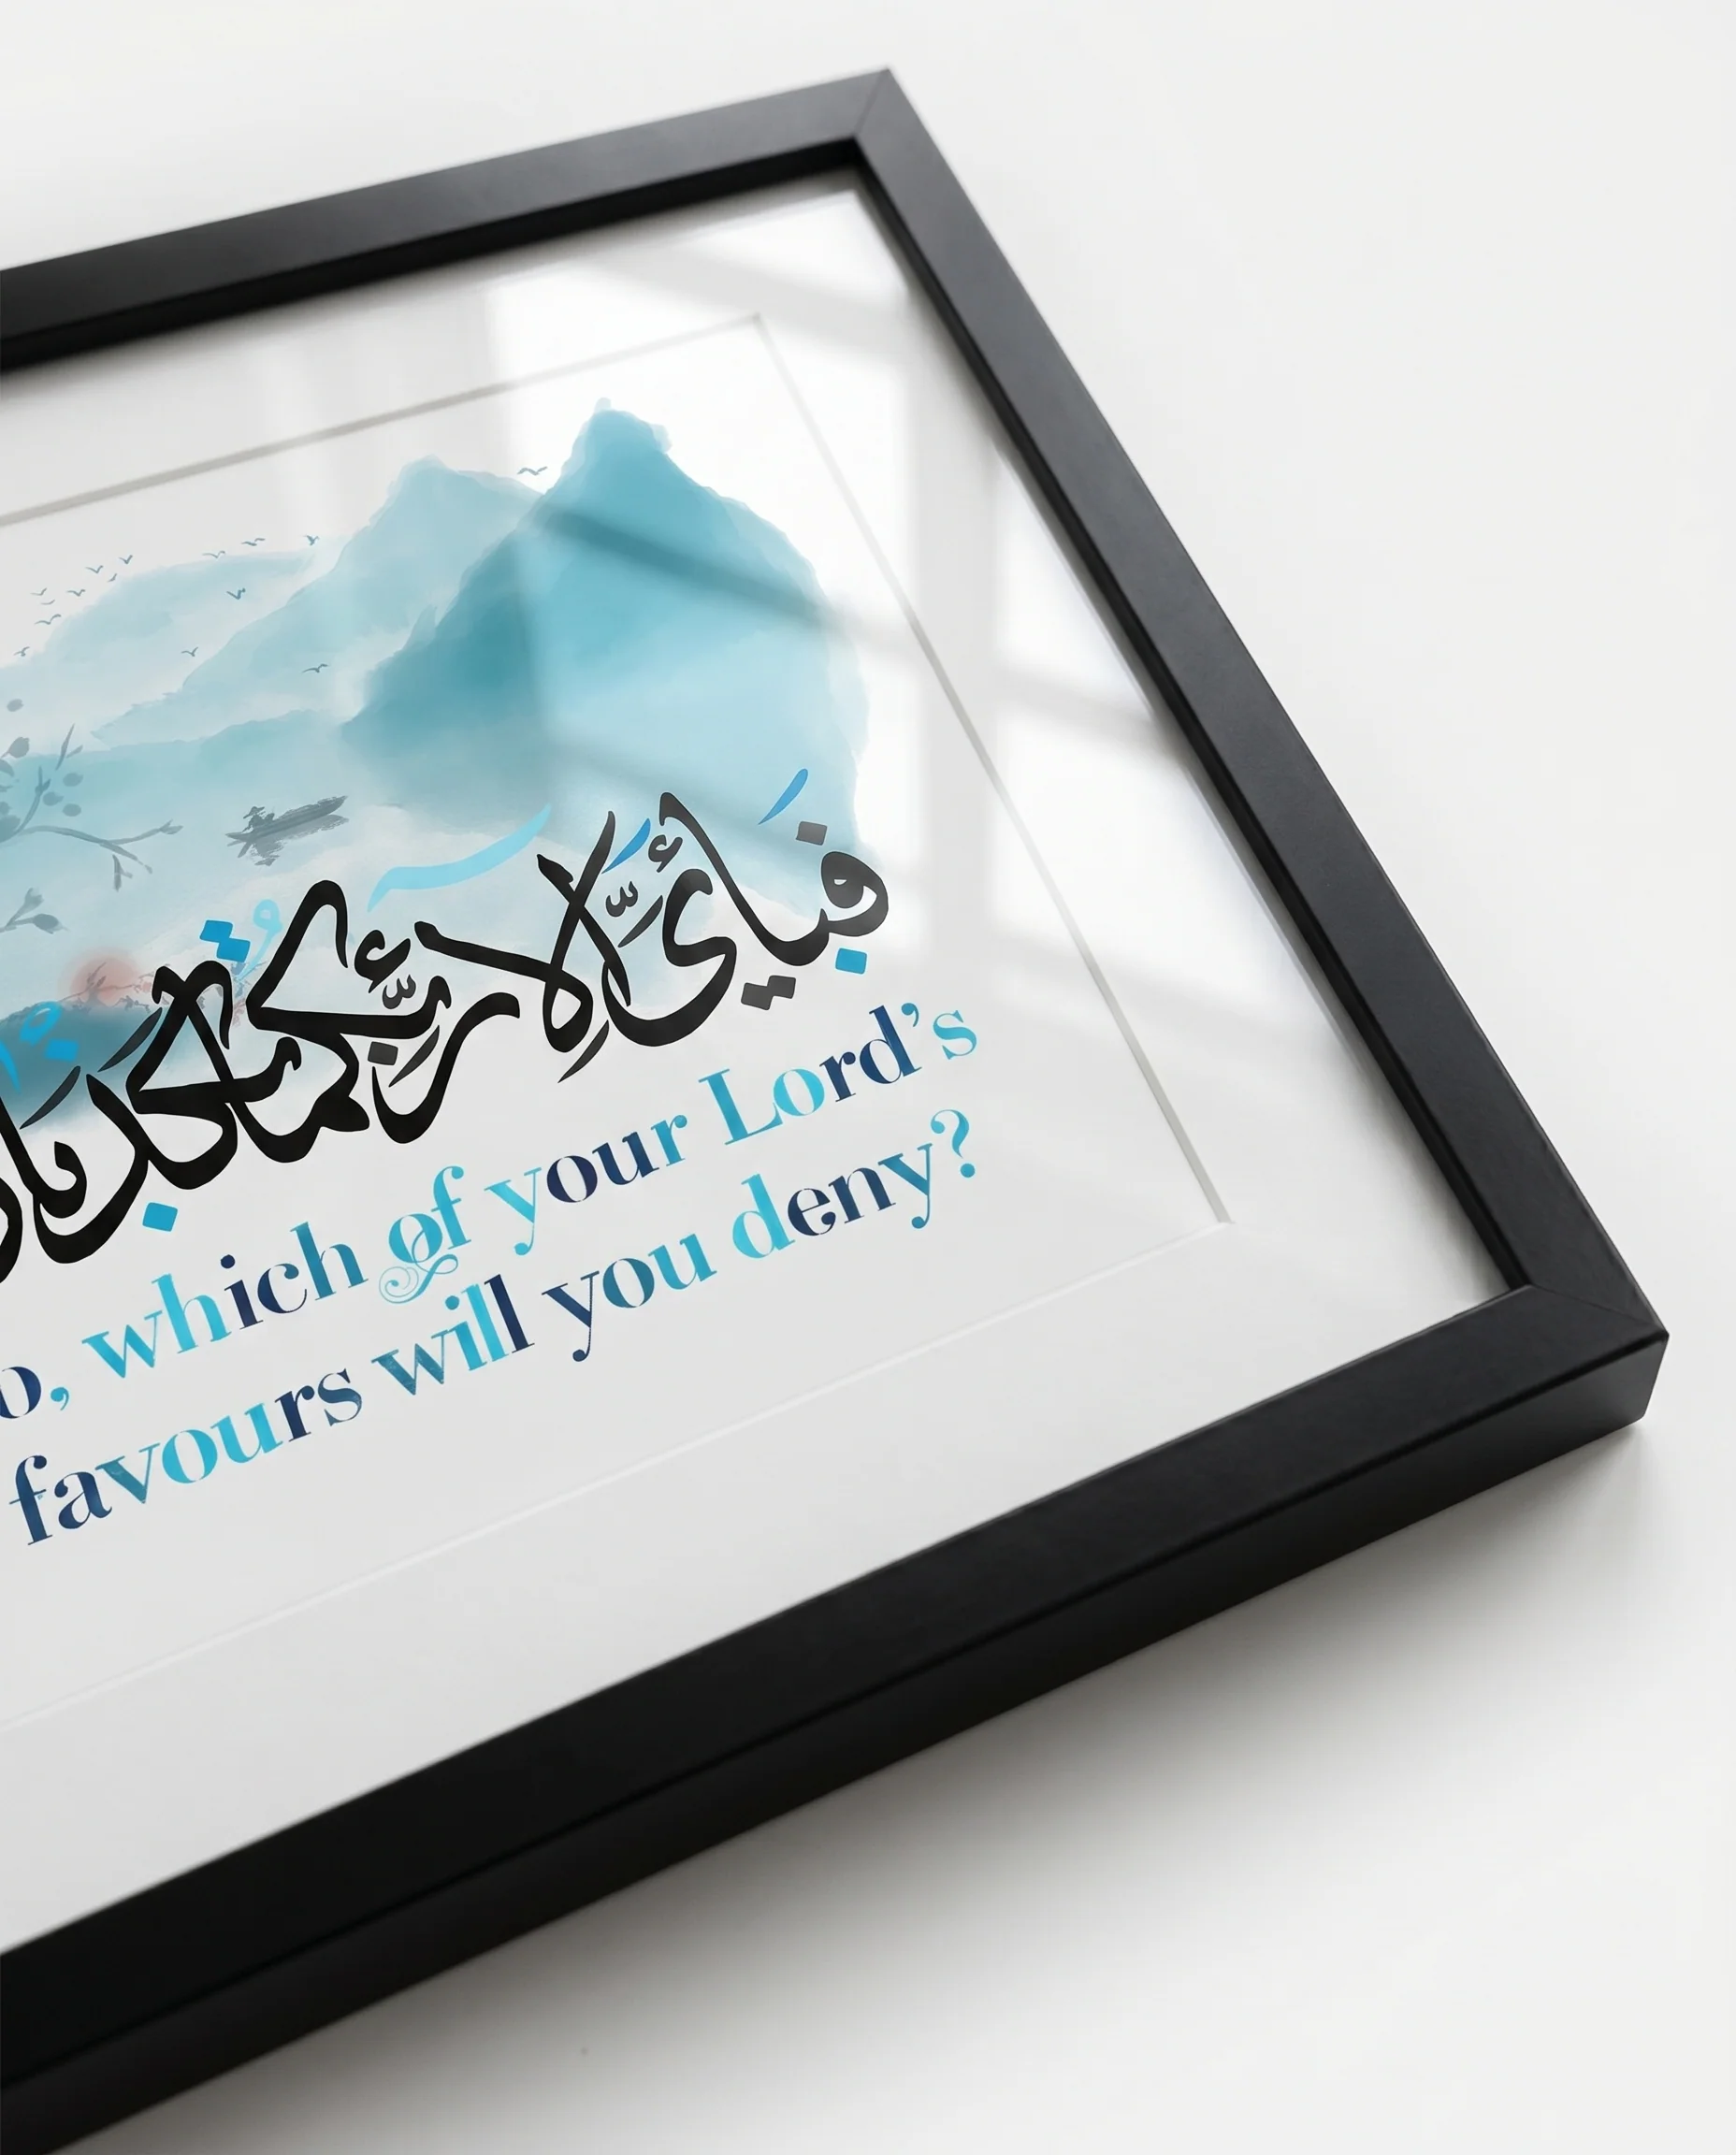 فبأي آلاء ربكما تكذبان
o, which of your Lord’s
favours will you deny?